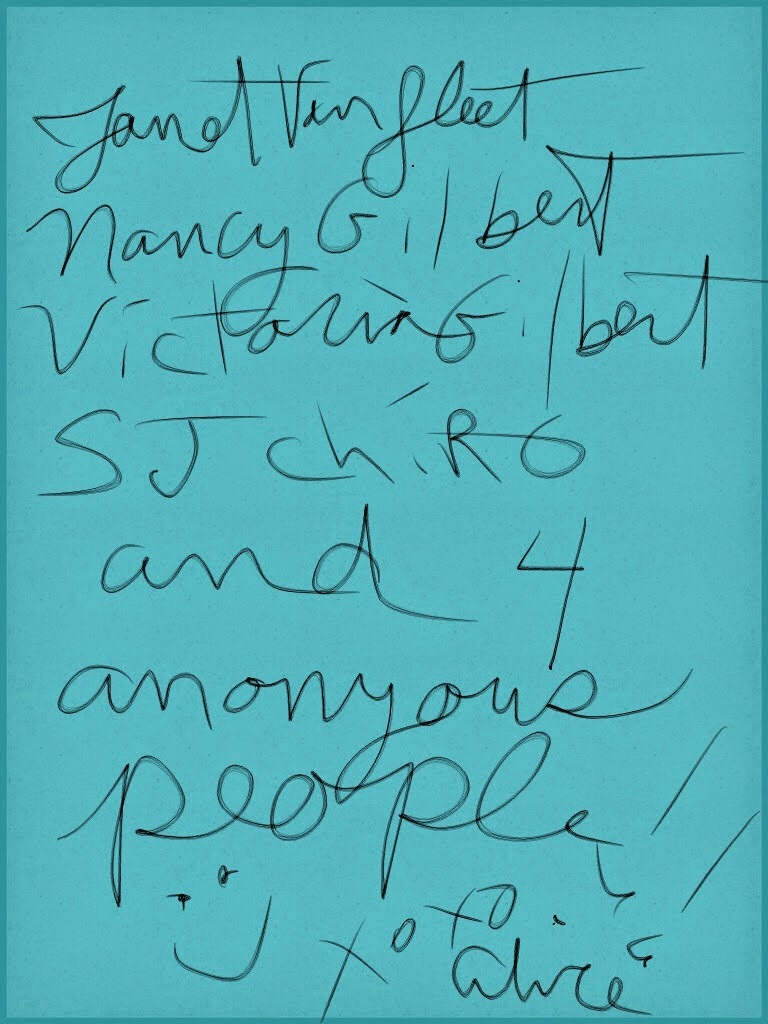 Janet Van Fleet
Nancy Gilbert
Victoria Gilbert
SJ chiRO
and 4
anonyous
people!!
xoxo
alice